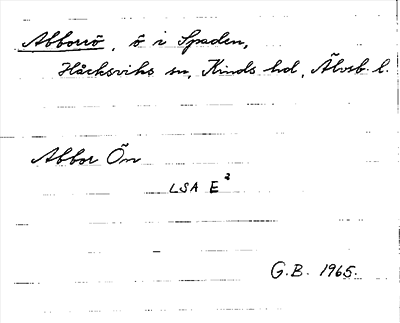 Abborrö, ö i Spaden,
Håcksviks sn, Kinds hd, Älvsb. l.
Abbor Ön
LSA E²
G.B. 1965.